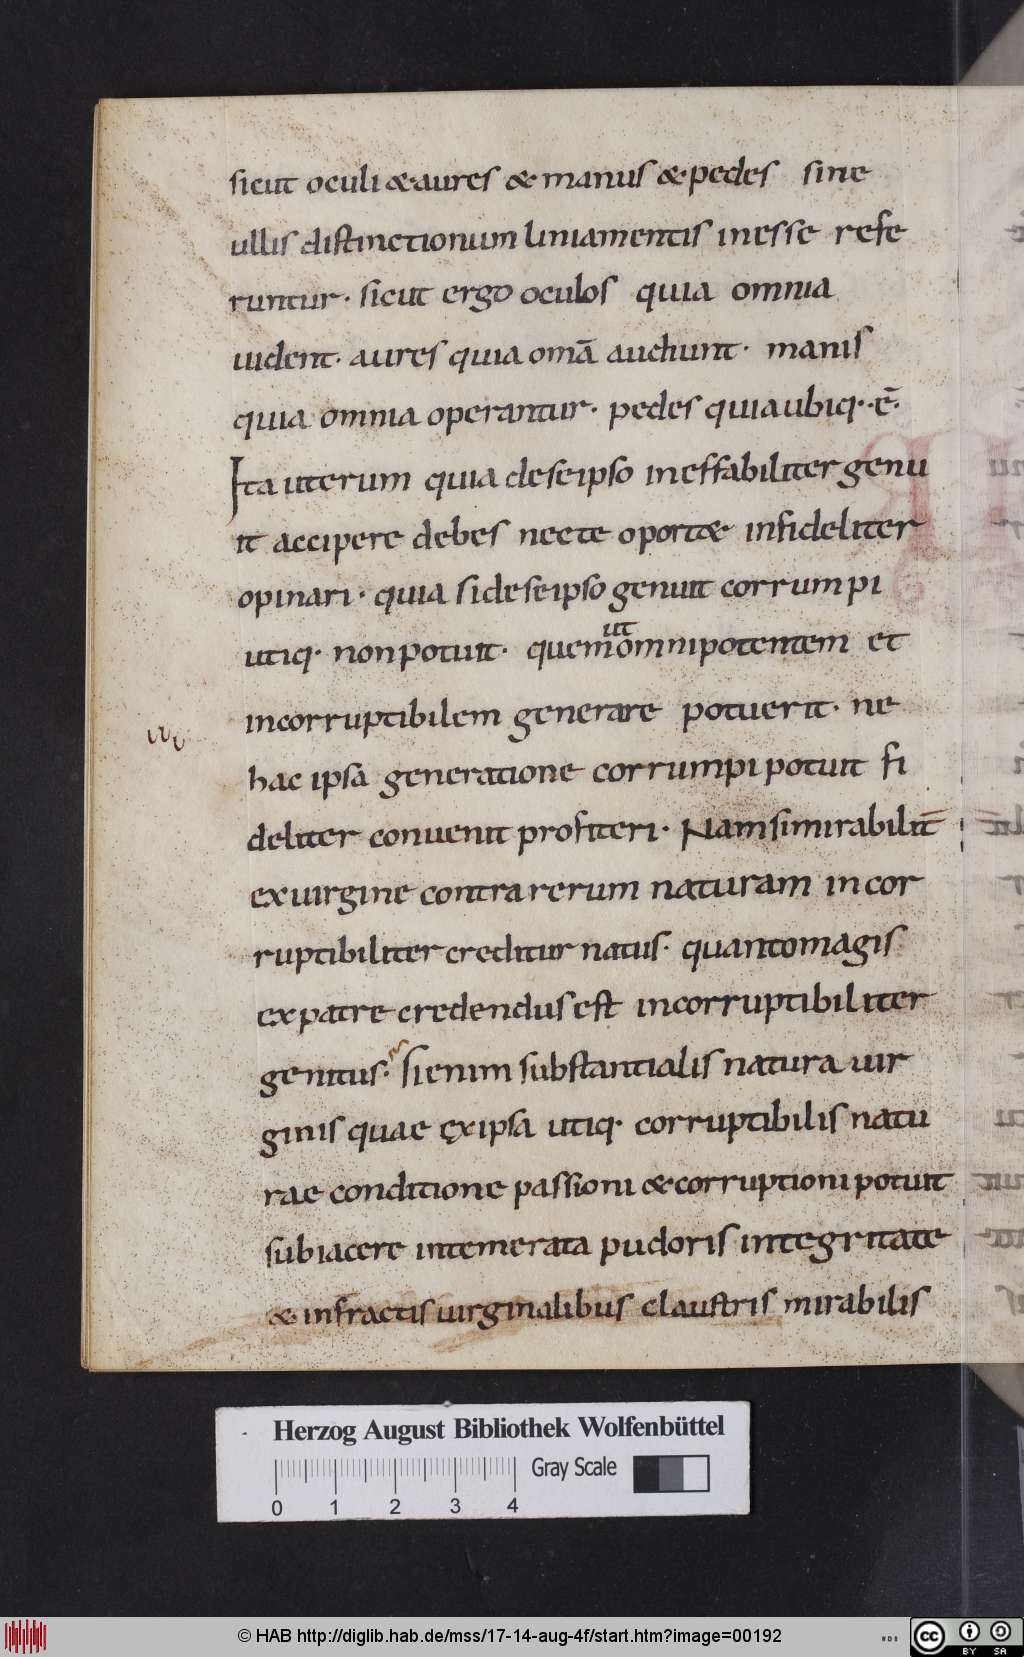 sicut oculi & aures & manus & pedes sine
ullis distinctionum liniamentis inesse refe
runtur· sicut ergo oculos quia omnia
uident· aures quia omā audiunt· manis
quia omnia operantur· pedes quia ubiq·· ē·
Ita uterum quia deseipso ineffabiliter genu
it accipere debes necte oport& infideliter
opinari· quia sideseipso genuit corrumpi
utiq· non potuit· quem ut omnipotentem et
incorruptibilem generare potuerit· ne
hac ipsa generatione corrumpi potuit fi
deliter conuenit profiteri· Nam si mirabilit̄
ex uirgine contra rerum naturam incor
ruptibiliter creditur natus· quantomagis
expatre credendus est incorruptibiliter
genitus· si enim substantialis natura uir
ginis quae ęxipsa utiq· corruptibilis natu
rae conditione passioni & corruptioni potuit
subiacere intemerata pudoris integritate
& infractis uirginalibus claustris mirabilis
Herzog August Bibliothek Wolfenbüttel
Gray Scale
0 1 2 3 4
© HAB http://diglib.hab.de/mss/17-14-aug-4f/start.htm?image=00192
WDB
cc BY SA